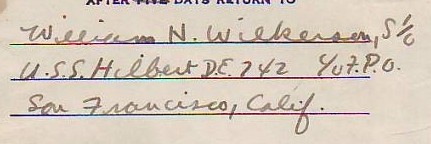 AFTER FIVE DAYS RETURN TO
William N. Wilkerson, S 1/c
U.S.S. Hilbert D.E. 742 c/o F.P.O.
San Francisco, Calif.